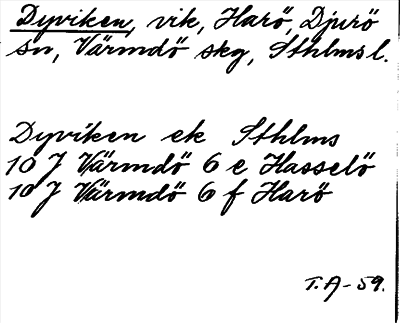 Dyviken, vik, Harö, Djurö
sn, Värmdö skg, Sthlms l.
Dyviken ek Sthlms
10 J Värmdö 6 e Hasselö
10 J Värmdö 6 f Harö
T.A-59.